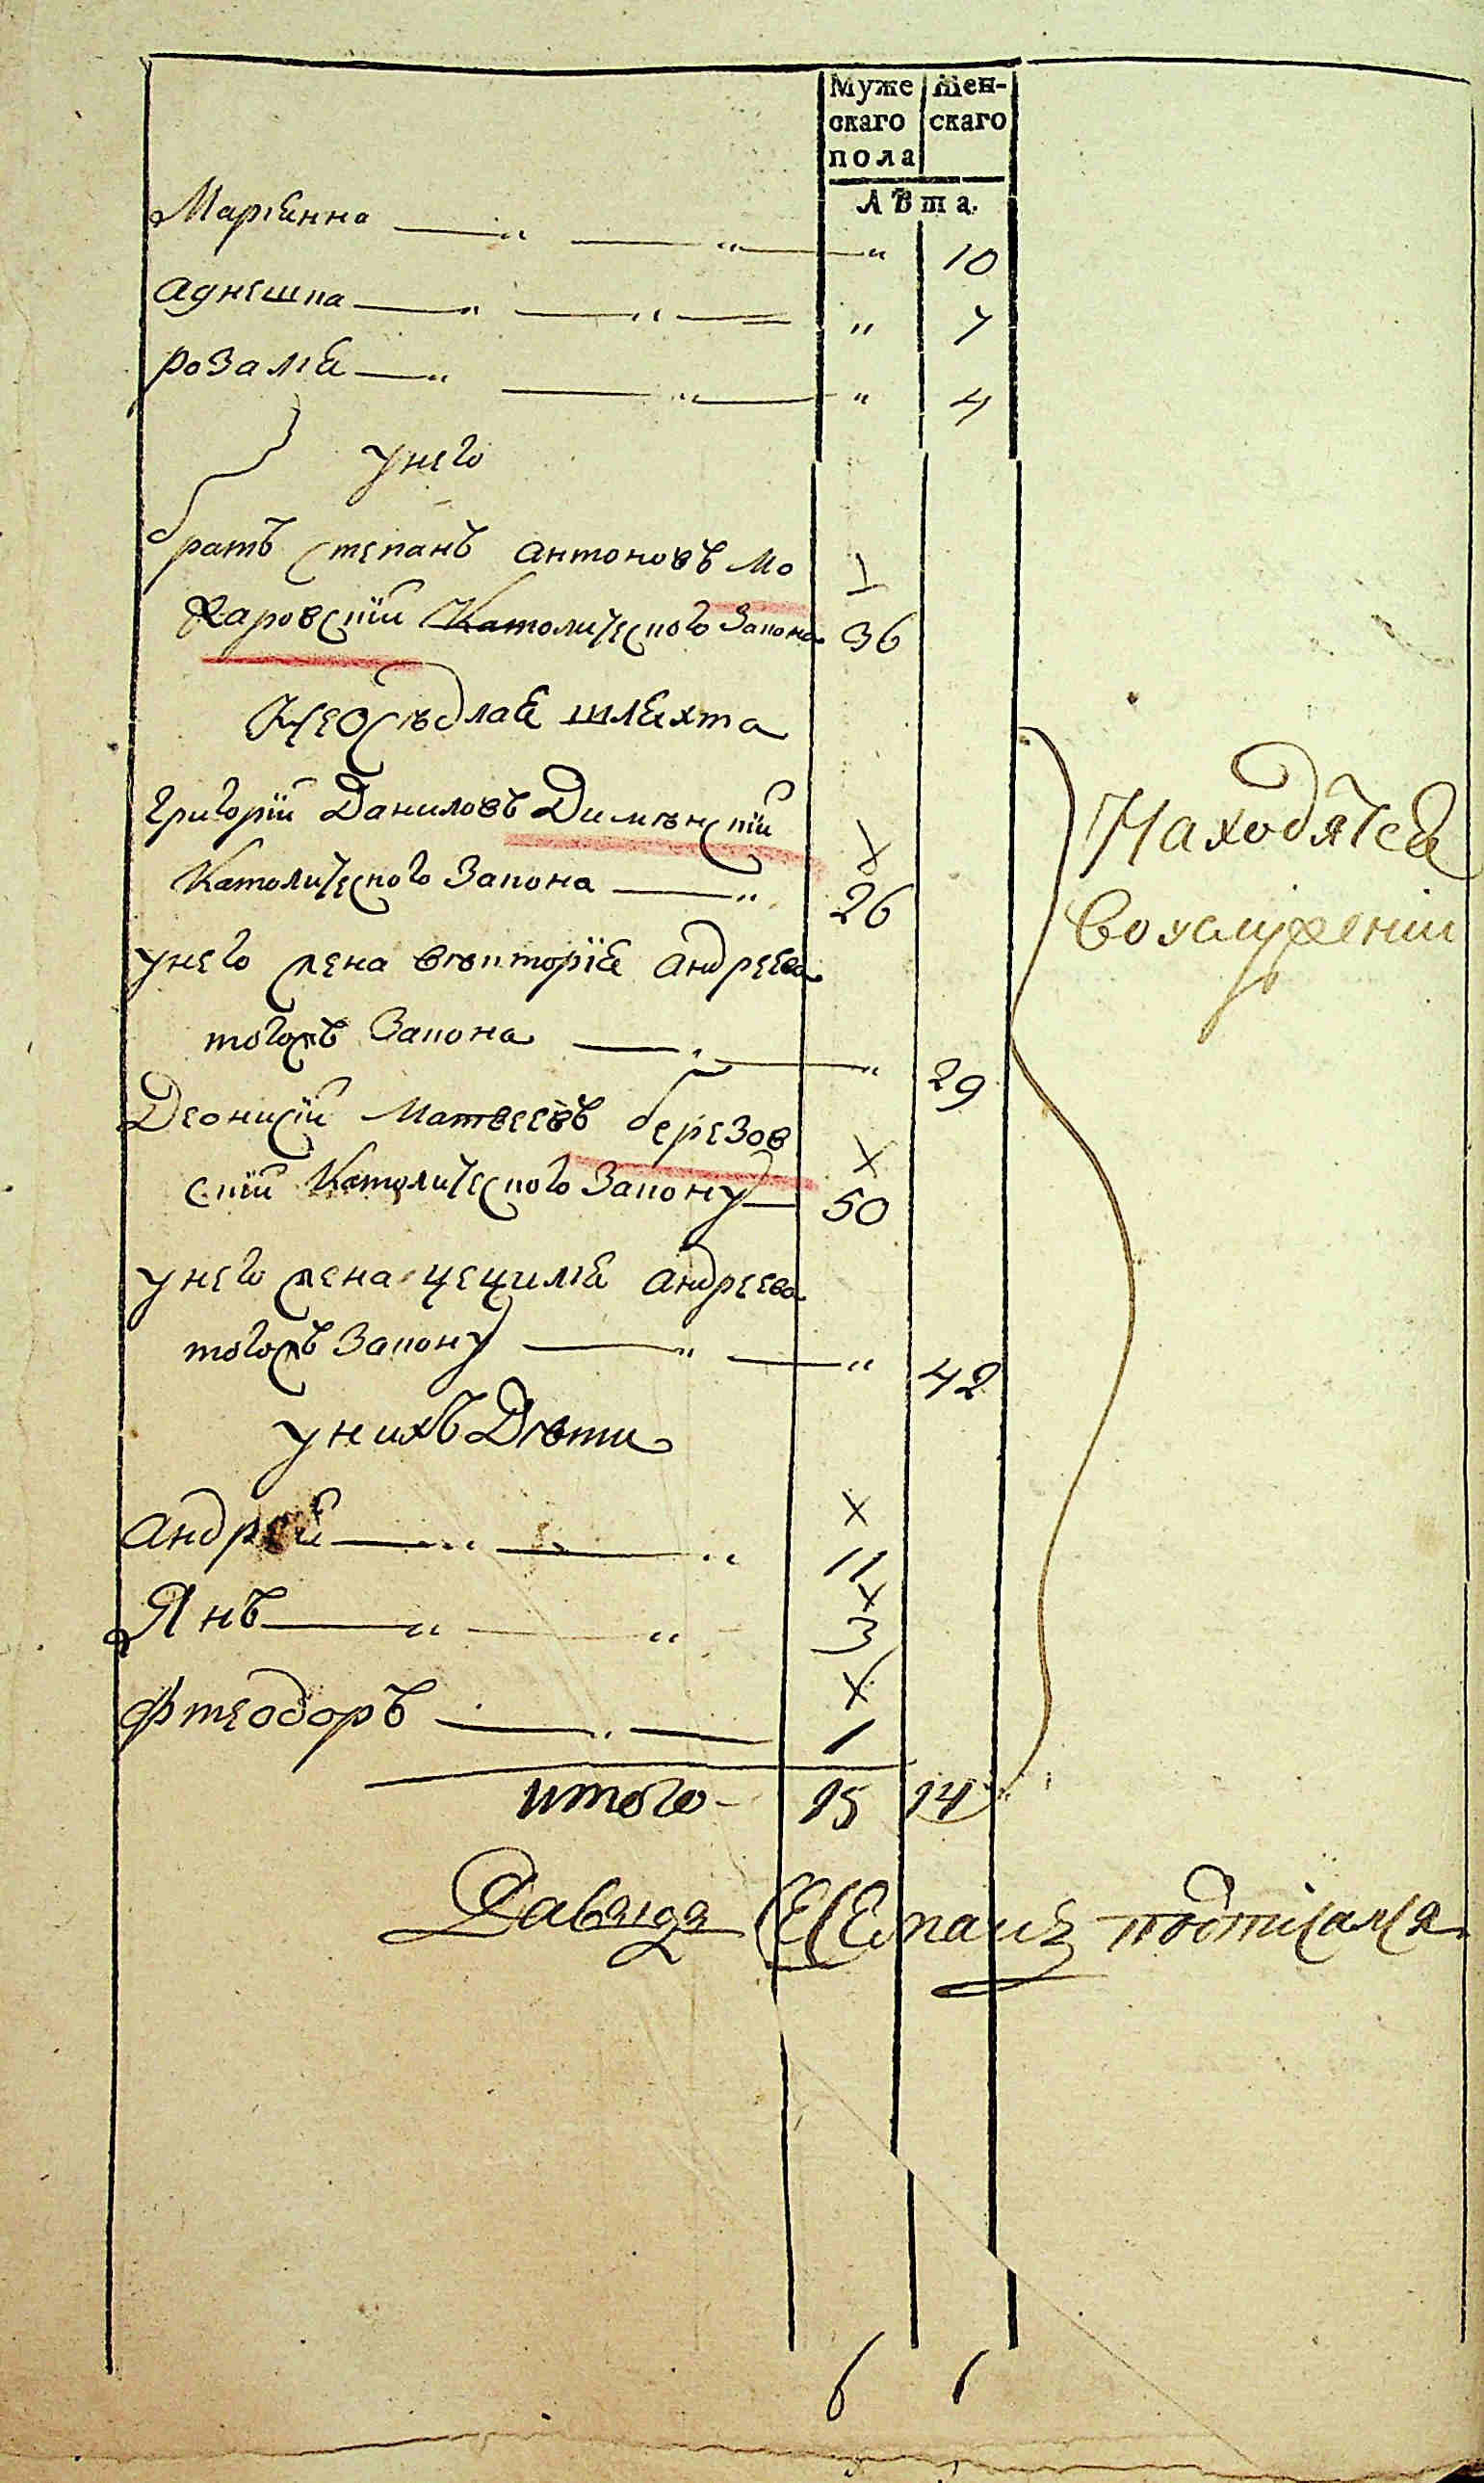 Муже
скаго
пола
Жен-
скаго
Лѣта.
Маріанна — " — " — " 10
Агнешка — " — " — " 7
Розалія — " — " — " 4
у него
братъ Степанъ Антоновъ Мо 1
жаровскій Католического Закона 36
Неосѣдлая шляхта
Григорій Даниловъ Димѣнскій x
Католического Закона — " 26
у него жена Вѣкторія Андреева
тогожъ Закона — " — " 29
Деонисій Матвеевъ Березов x
скій Католического Закону — 50
у него жена Цецилія Андреева
тогожъ Закону — " — " 42
у нихъ Дѣти
x
Андрей — " — " 11
x
Янъ — " — " 3
x
Фтеодоръ — " — 1
Находятся
итого - 15 14
подписался
6 1